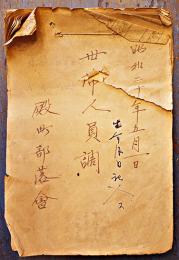 昭和二十年五月一日
世帯人員調
生年月日記入
殿町部落會